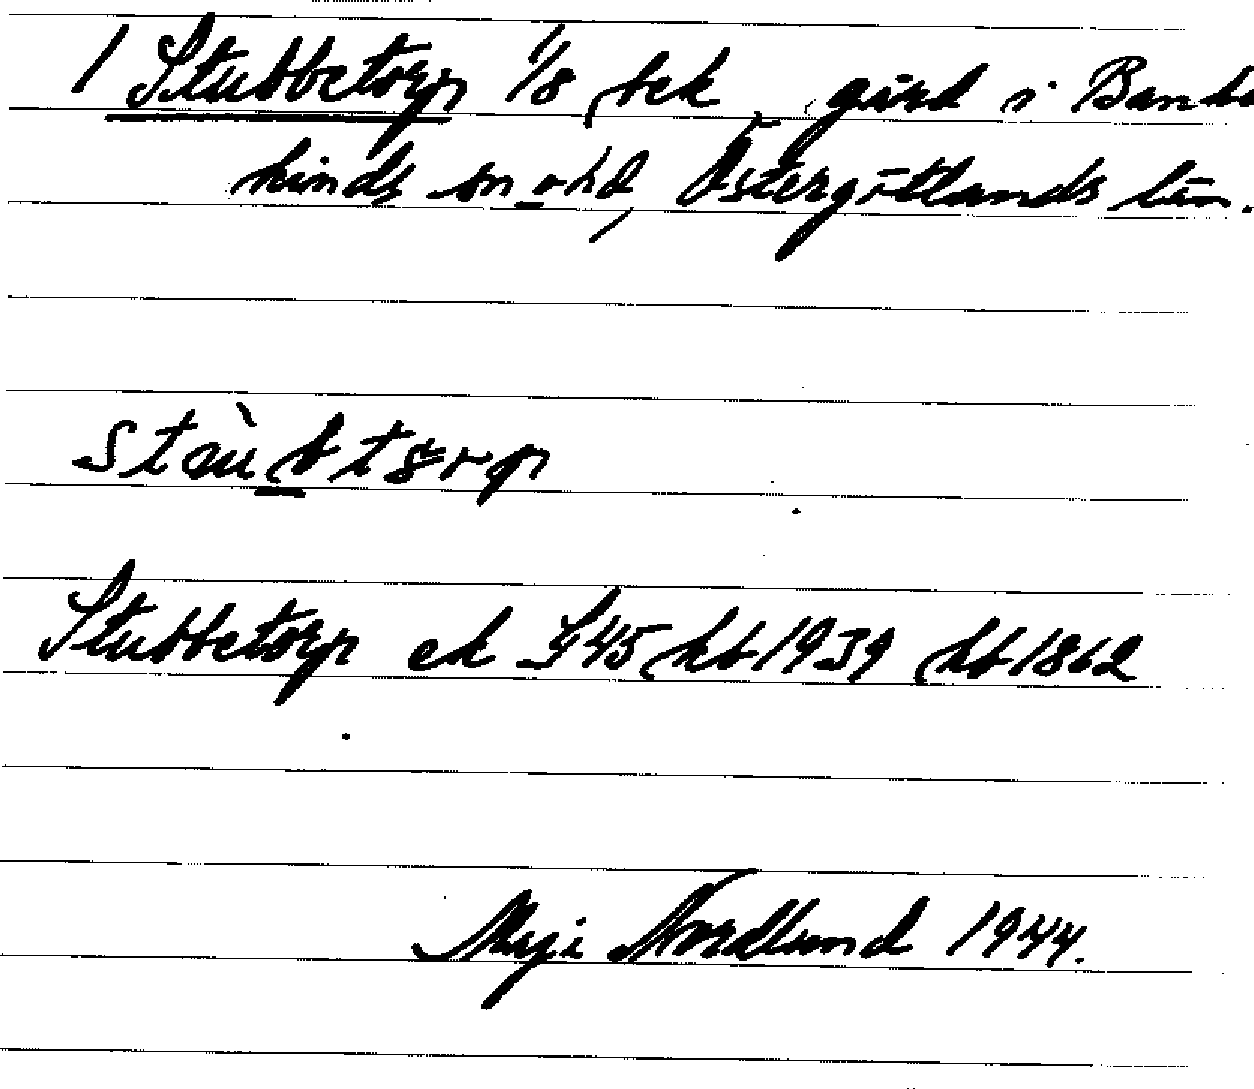 1 Stubbetorp 1/8 sek, gård i Banke
kinds sn o hd, Östergötlands län.
Stubbetorp ek J45 hb 1939 hb 1862
Maji Nordlund 1944.